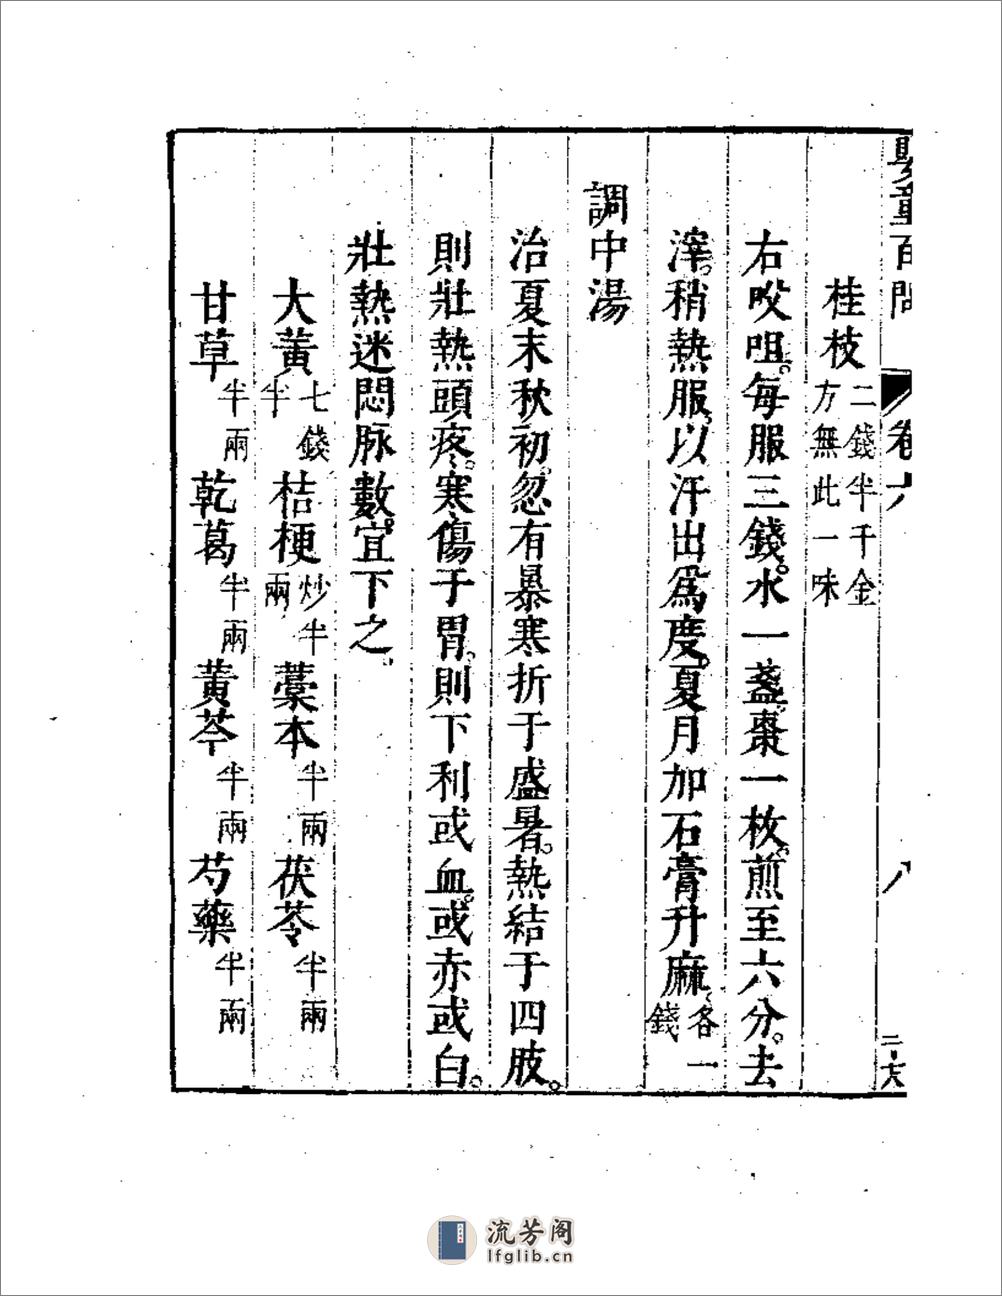 嬰童百問 卷六 八 二十六
桂枝二錢半千金方無此一味
右㕮咀。每服三錢。水一盞棗一枚。煎至六分。去
滓。稍熱服。以汗出爲度。夏月加石膏升麻、各一錢
調中湯
治夏末秋初。忽有暴寒折于盛暑。熱結于四肢。
則壯熱頭疼。寒傷于胃。則下利或血。或赤或白。
壯熱迷悶脉數。宜下之。
大黃七錢半 桔梗炒半兩 藁本半兩 茯苓半兩
甘草半兩 乾葛半兩 黃芩半兩 芍藥半兩
流芳阁
lfglib.cn